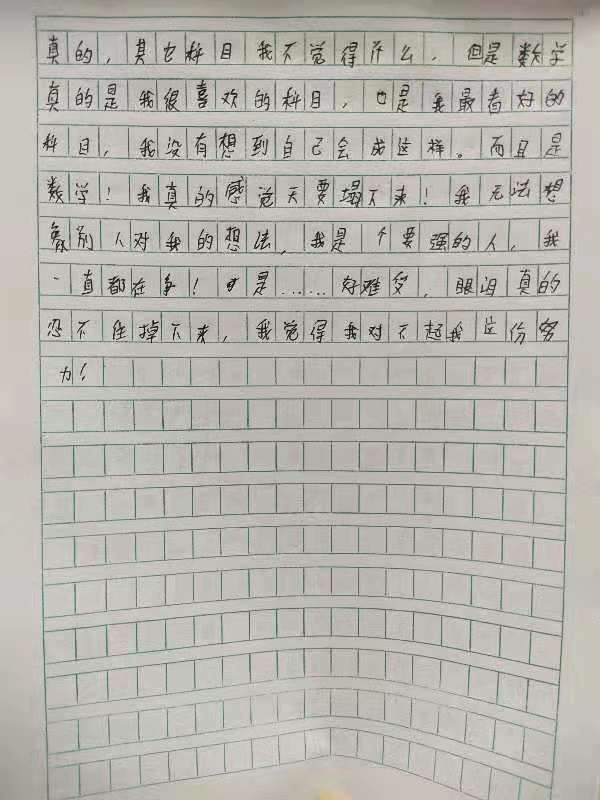 真的，其它科目我不觉得什么，但是数学
真的是我很喜欢的科目，也是我最看好的
科目，我没有想到自己会成这样。而且是
数学！我真的感觉天要塌下来！我无法想
象别人对我的想法，我是个要强的人，我
一直都在争！可是……好难受，眼泪真的
忍不住掉下来，我觉得我对不起我这份努
力！